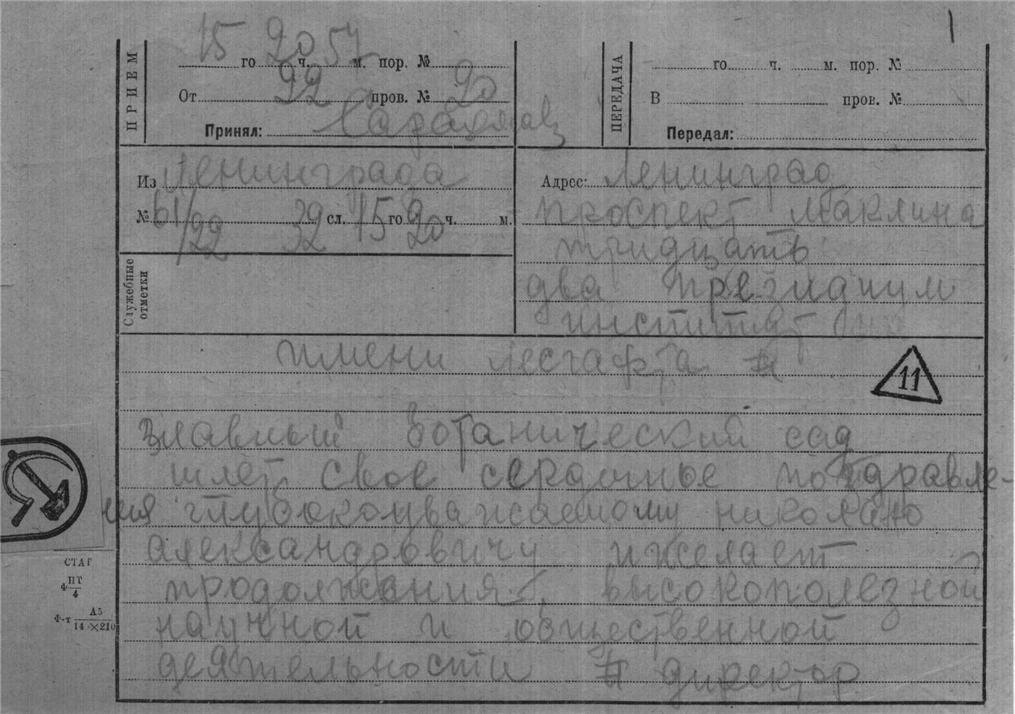 1
ПРИЕМ
15 го 20 ч. 57 м. пор. №
От 22 пров. № 20
Принял:
ПЕРЕДАЧА
го ч. м. пор. №
В пров. №
Передал:
Из Ленинграда
№ 61/22 32 сл. 15 го 20 ч. м.
Служебные
отметки
Адрес: Ленинград
проспект Маклина
тридцать
два президиум
институт
имени лесгафта
11
главный ботанический сад
шлет свое сердечные поздравле-
ния глубокоуважаемому николаю
александровичу и желает
продолжания высокополезной
научной и общественной
деятельности директор
СТАГ
Ф ПТ/4
Ф-т А5/14×210